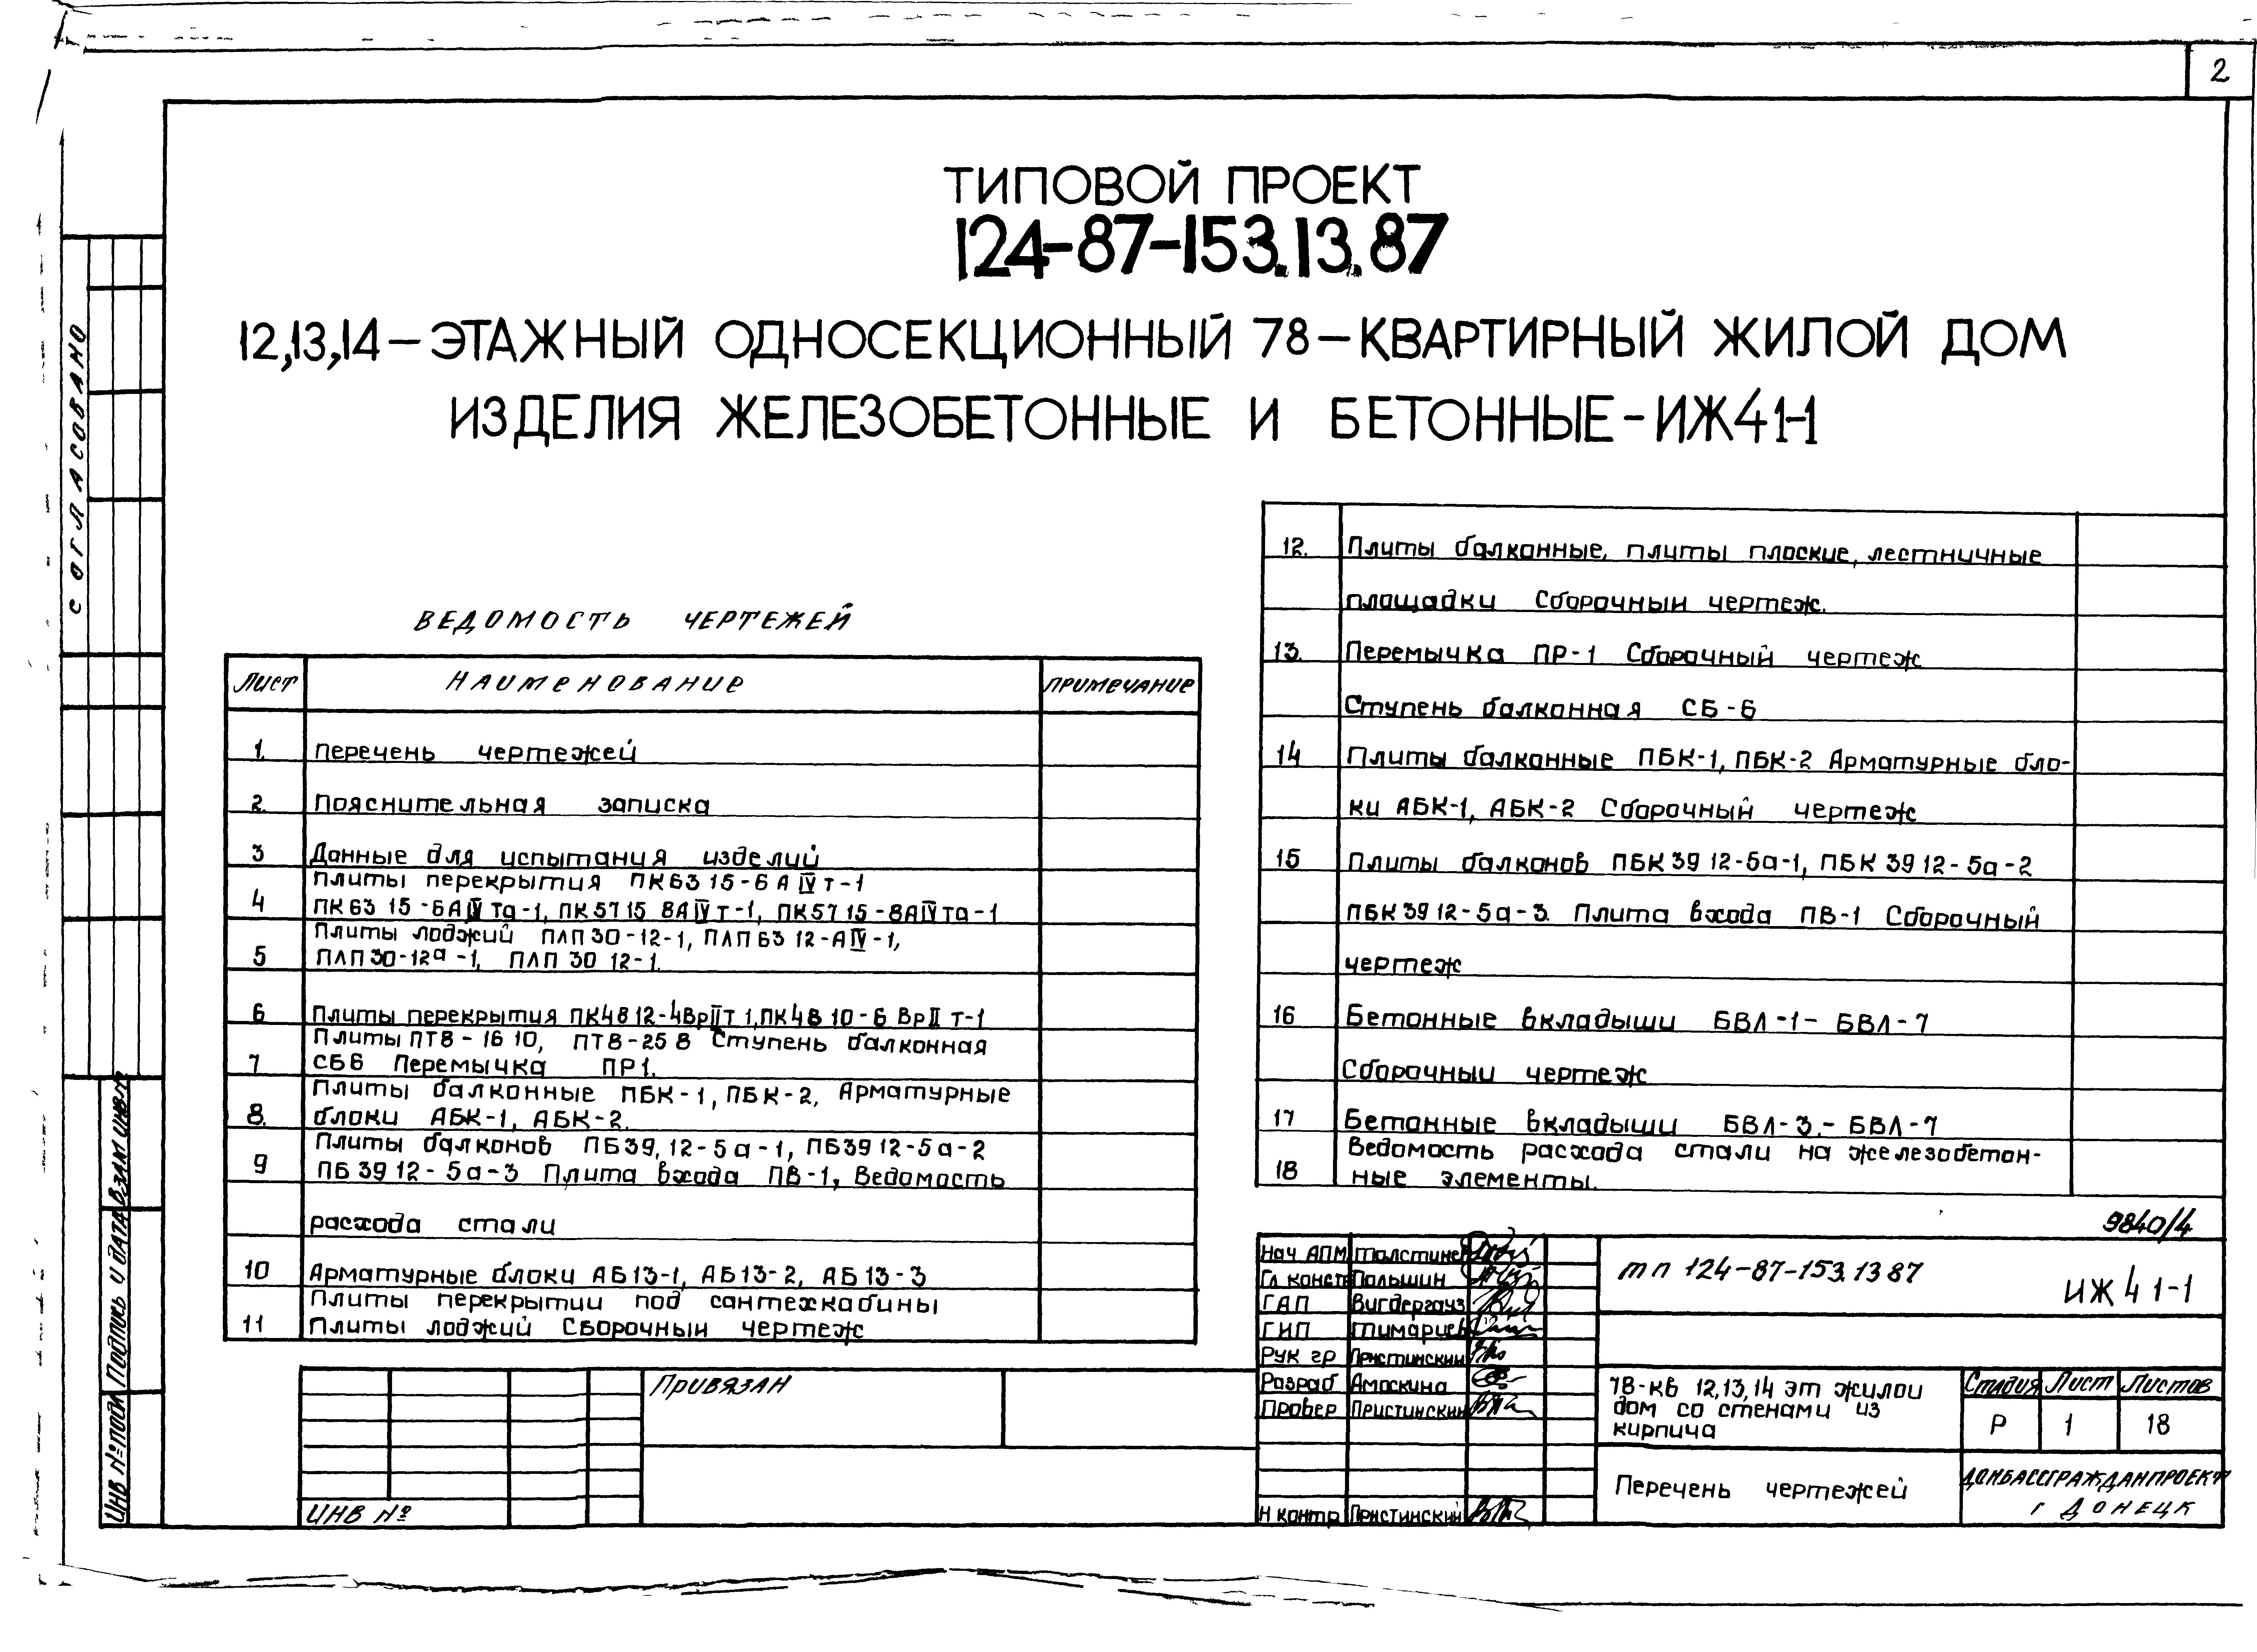 2
ТИПОВОЙ ПРОЕКТ
124-87-153.13.87
12,13,14-ЭТАЖНЫЙ ОДНОСЕКЦИОННЫЙ 78-КВАРТИРНЫЙ ЖИЛОЙ ДОМ
ИЗДЕЛИЯ ЖЕЛЕЗОБЕТОННЫЕ И БЕТОННЫЕ-ИЖ41-1
СОГЛАСОВАНО
ВЕДОМОСТЬ ЧЕРТЕЖЕЙ
Лист НАИМЕНОВАНИЕ ПРИМЕЧАНИЕ
1. Перечень чертежей
2. Пояснительная записка
3 Данные для испытания изделий
Плиты перекрытия ПК63 15-6 А IV т-1
4 ПК63 15-6А IV та-1, ПК57 15 8А IV т-1, ПК57 15-8А IV та-1
Плиты лоджий ПЛП30-12-1, ПЛП63 12-А IV-1,
5 ПЛП30-12а-1, ПЛП 30 12-1.
6 Плиты перекрытия ПК48 12-4ВрII т 1, ПК48 10-6 ВрII т-1
Плиты ПТ8-16 10, ПТ8-25 8 Ступень балконная
7 СБ6 Перемычка ПР1.
Плиты балконные ПБК-1, ПБК-2, Арматурные
8. блоки АБК-1, АБК-2.
Плиты балконов ПБ39, 12-5а-1, ПБ39 12-5а-2
9 ПБ39 12-5а-3 Плита входа ПВ-1, Ведомость
расхода стали
10 Арматурные блоки АБ13-1, АБ13-2, АБ13-3
Плиты перекрытии под сантехкабины
11 Плиты лоджий Сборочныи чертеж
12. Плиты балконные, плиты плоские, лестничные
площадки Сборочныи чертеж.
13. Перемычка ПР-1 Сборочный чертеж
Ступень балконная СБ-6
14 Плиты балконные ПБК-1, ПБК-2 Арматурные бло-
ки АБК-1, АБК-2 Сборочный чертеж
15 Плиты балконов ПБК39 12-5а-1, ПБК39 12-5а-2
ПБК39 12-5а-3. Плита входа ПВ-1 Сборочный
чертеж
16 Бетонные вкладыши БВЛ-1- БВЛ-7
Сборочныи чертеж
17 Бетонные вкладыши БВЛ-3.- БВЛ-7
Ведомость расхода стали на железобетон-
18 ные элементы.
9840/4
Нач АПМ
Гл констр Польшин
ГАП Вигдергауз
ГИП
Рук гр Пристинский
Разраб Амоскина
Провер Пристинский
Н контр Пристинский
тп 124-87-153.13 87
ИЖ 4 1-1
78-кв 12,13,14 эт жилои
дом со стенами из
кирпича
Стадия Лист Листов
Р 1 18
Перечень чертежей
ДОНБАССГРАЖДАНПРОЕКТ
г ДОНЕЦК
ПРИВЯЗАН
ИНВ №
Инв № подл Подпись и дата Взам инв №